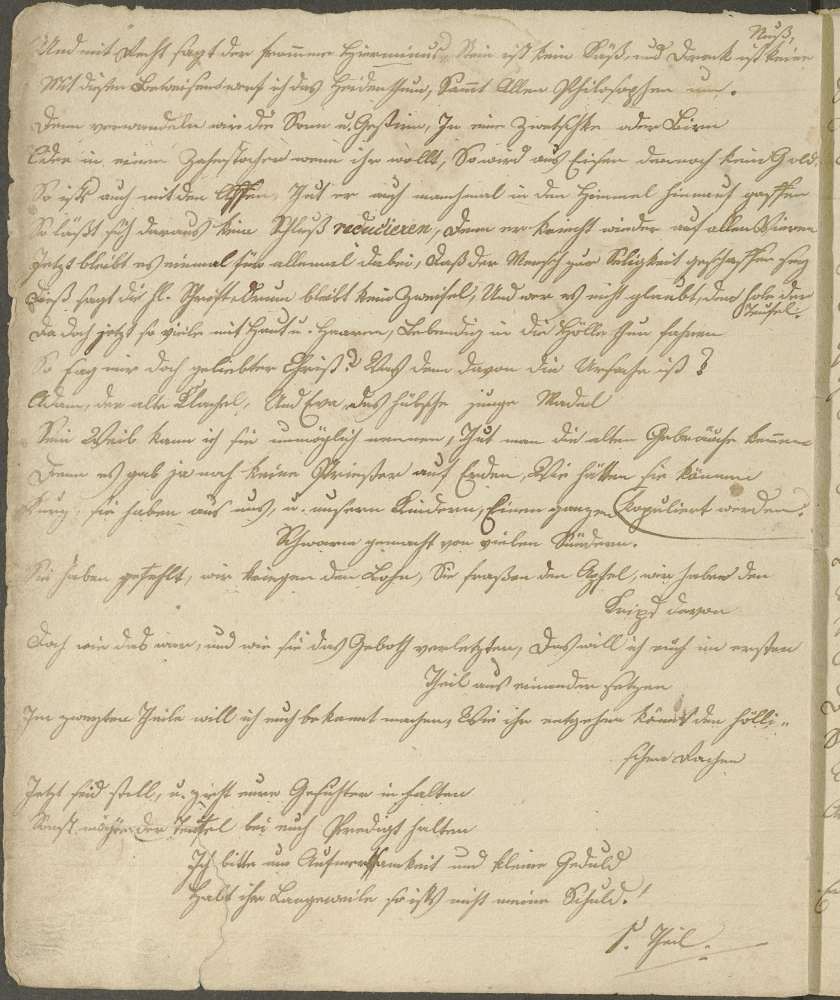 Nuß,
Und mit Recht sagt der fromme Hieronimus, Wein ist kein Käß, und Dreck ist keine
Mit diesen Beweisen werf ich das Heidenthum, Sammt Allen Philosophen um.
Denn verwandeln wir die Sonn u. Gestirn, In eine Zwetschke oder Birn
Oder in einen Zahnstocher wenn ihr wollt, So wird aus Eisen dennoch kein Gold.
So ists auch mit den Affen, Thut er auch manchmal in den Himmel hinauf gaffen
So läßt sich daraus kein Schluß reducieren, Denn er kriecht wieder auf allen Vieren
Jetzt bleibt es einmal für allemal dabei, Daß der Mensch zur Seligkeit geschaffen sey
Dieß sagt die hl. Schrift Drum bleibt kein Zweifel, Und wer es nicht glaubt, den hole der
Teufel.
Da doch jetzt so viele mit Haut u. Haaren, Lebendig in die Hölle thun fahren
So sag mir doch geliebter Christ? Was denn davon die Ursache ist?
Adam, der alte Klachel, Und Eva, das hübsche junge Madel
Sein Weib kann ich sie unmöglich nennen, Thut man die alten Gebräuche kennen
Denn es gab ja noch keine Priester auf Erden, Wie hätten sie können
Kurz, sie haben aus uns, u. unsern Kindern, Einen ganzen (kopuliert werden.
Schwarm gemacht von vielen Sündern.
Sie haben gefehlt, wir kriegen den Lohn, Sie fraßen den Apfel, wir haben den
Kripß davon
Doch wie das war, und wie sie das Geboth verletzten, Das will ich euch im ersten
Theil aus einander setzen
Im zweyten Theile will ich euch bekannt machen, Wie ihr entgehen könnt den hölli-
schen Rachen
Jetzt seid still, u. zieht eure Gesichter in Falten
Sonst möchte der Teufel bei euch Predigt halten
Ich bitte um Aufmerksamkeit und kleine Geduld
Habt ihr Langeweile so ists nicht meine Schuld.!
1. Theil.